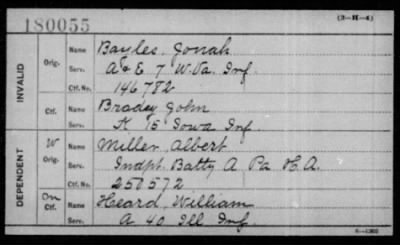 180055
(3-H-4)
INVALID
Orig. Name Bayles, Jonah
Serv. A & E 7 W. Va. Inf.
Ctf. No. 146782
Ctf. Name Bradey John
Serv. K 15 Iowa Inf.
DEPENDENT
W Orig. Name Miller Albert
Serv. Indpt. Batty A Pa H. A.
Ctf. No. 250572
On Ctf. Name Heard, William
Serv. A 40 Ill Inf.